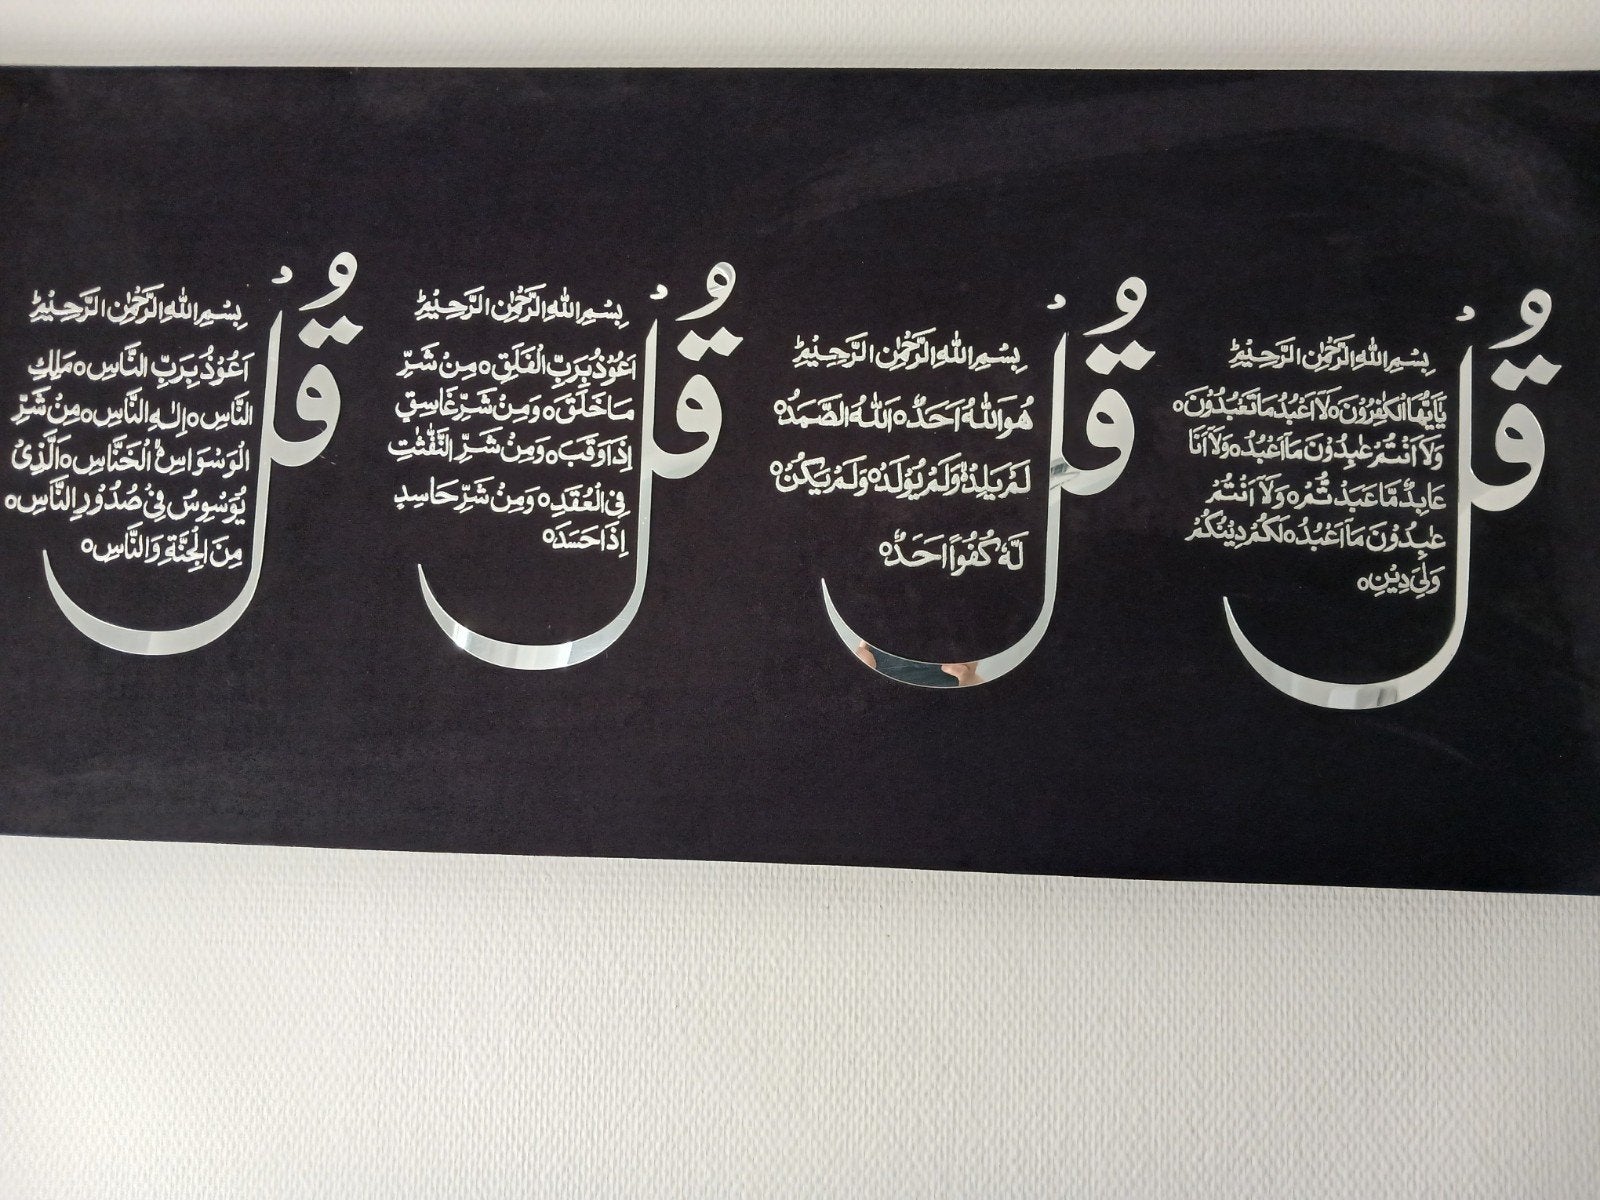 قُلْ
بِسْمِ اللهِ الرَّحْمٰنِ الرَّحِيْمِ
يٰٓاَيُّهَا الْكٰفِرُوْنَ ۝ لَآ اَعْبُدُ مَا تَعْبُدُوْنَ ۝
وَلَآ اَنْتُمْ عٰبِدُوْنَ مَآ اَعْبُدُ ۝ وَلَآ اَنَا
عَابِدٌ مَّا عَبَدْتُّمْ ۝ وَلَآ اَنْتُمْ
عٰبِدُوْنَ مَآ اَعْبُدُ ۝ لَكُمْ دِيْنُكُمْ
وَلِيَ دِيْنِ ۝
قُلْ
بِسْمِ اللهِ الرَّحْمٰنِ الرَّحِيْمِ
هُوَ اللهُ اَحَدٌ ۝ اَللهُ الصَّمَدُ ۝
لَمْ يَلِدْ ۙ وَلَمْ يُوْلَدْ ۝ وَلَمْ يَكُنْ
لَّهٗ كُفُوًا اَحَدٌ ۝
قُلْ
بِسْمِ اللهِ الرَّحْمٰنِ الرَّحِيْمِ
اَعُوْذُ بِرَبِّ الْفَلَقِ ۝ مِنْ شَرِّ
مَا خَلَقَ ۝ وَمِنْ شَرِّ غَاسِقٍ
اِذَا وَقَبَ ۝ وَمِنْ شَرِّ النَّفّٰثٰتِ
فِي الْعُقَدِ ۝ وَمِنْ شَرِّ حَاسِدٍ
اِذَا حَسَدَ ۝
قُلْ
بِسْمِ اللهِ الرَّحْمٰنِ الرَّحِيْمِ
اَعُوْذُ بِرَبِّ النَّاسِ ۝ مَلِكِ
النَّاسِ ۝ اِلٰهِ النَّاسِ ۝ مِنْ شَرِّ
الْوَسْوَاسِ ۙ الْخَنَّاسِ ۝ الَّذِيْ
يُوَسْوِسُ فِيْ صُدُوْرِ النَّاسِ ۝
مِنَ الْجِنَّةِ وَالنَّاسِ ۝